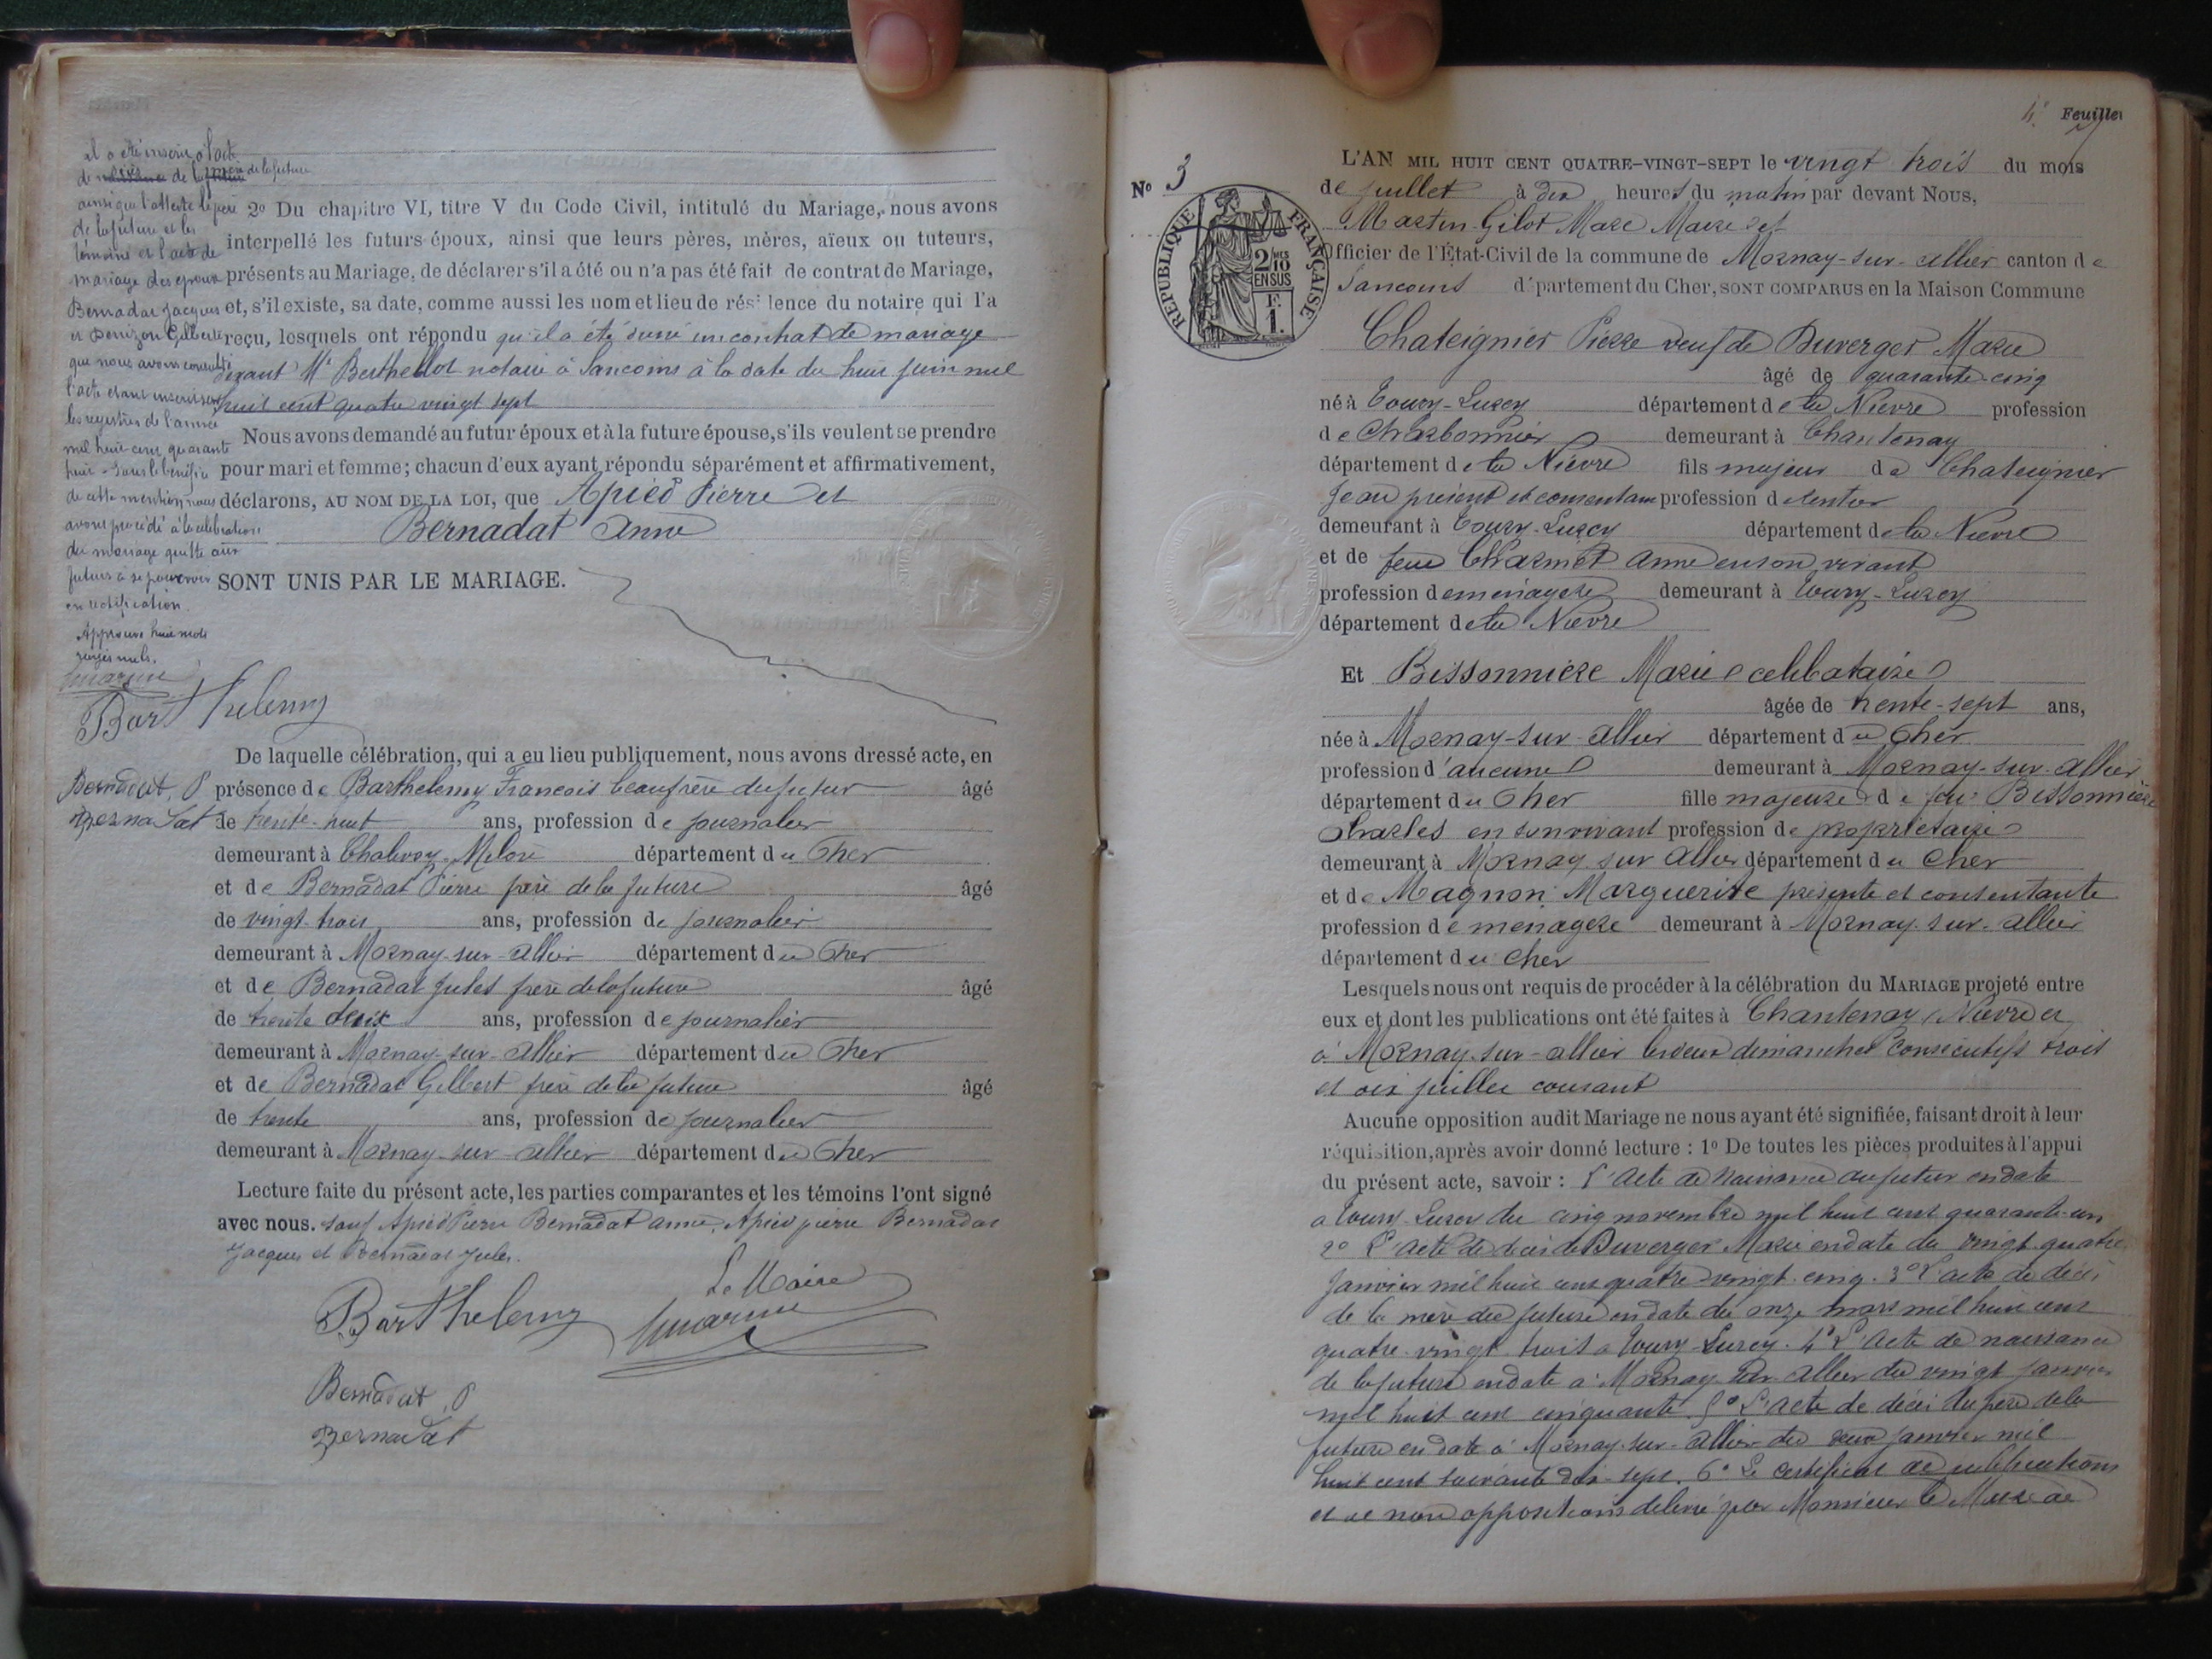 il a été inscrit à l'acte
de naissance de la mère de la future
ainsi que l'atteste le père
de la future et les
témoins et l'acte de
mariage des époux
Bernadat Jacques
et Denizon Gilberte
que nous avons consulté
l'acte étant inscrit sur
les registres de l'année
mil huit cent quarante
huit - sous le bénéfice
de cette mention nous
avons procédé à la célébration
du mariage quitte aux
futurs à se pourvoir
en rectification.
Approuvé huit mots
rayés nuls.
Barthelemy
Bernadat, P
Bernadat
2º Du chapitre VI, titre V du Code Civil, intitulé du Mariage, nous avons
interpellé les futurs époux, ainsi que leurs pères, mères, aïeux ou tuteurs,
présents au Mariage, de déclarer s'il a été ou n'a pas été fait de contrat de Mariage,
et, s'il existe, sa date, comme aussi les nom et lieu de résidence du notaire qui l'a
reçu, lesquels ont répondu qu'il a été passé un contrat de mariage
devant Me Berthellot notaire à Sancoins à la date du huit juin mil
huit cent quatre vingt sept
Nous avons demandé au futur époux et à la future épouse, s'ils veulent se prendre
pour mari et femme; chacun d'eux ayant répondu séparément et affirmativement,
déclarons, AU NOM DE LA LOI, que Apied Pierre et
Bernadat Anne
SONT UNIS PAR LE MARIAGE.
De laquelle célébration, qui a eu lieu publiquement, nous avons dressé acte, en
présence de Barthelemy Francois beaufrère du futur âgé
de trente-huit ans, profession de journalier
demeurant à Chalivoy-Milon département du Cher
et de Bernadat Pierre frère de la future âgé
de vingt-trois ans, profession de journalier
demeurant à Mornay-sur-Allier département du Cher
et de Bernadat Jules frère de la future âgé
de trente deux ans, profession de journalier
demeurant à Mornay-sur-Allier département du Cher
et de Bernadat Gilbert frère de la future âgé
de trente ans, profession de journalier
demeurant à Mornay-sur-Allier département du Cher
Lecture faite du présent acte, les parties comparantes et les témoins l'ont signé
avec nous. sauf Apied Pierre Bernadat anne, Apied pierre Bernadat
Jacques et Bernadat Jules.
Le Maire
Barthelemy
Bernadat, P
Bernadat
4e Feuille
Nº 3
RÉPUBLIQUE FRANÇAISE
2/10 EN SUS
F. 1.
L'AN MIL HUIT CENT QUATRE-VINGT-SEPT le vingt trois du mois
de juillet à dix heures du matin par devant Nous,
Martin-Gilot Marc Maire et
Officier de l'État-Civil de la commune de Mornay-sur-Allier canton de
Sancoins département du Cher, SONT COMPARUS en la Maison Commune
Chateignier Pierre veuf de Duverger Marie
âgé de quarante-cinq
né à Toury-Lurcy département de la Nièvre profession
de Charbonnier demeurant à Chantenay
département de la Nièvre fils majeur de Chateignier
Jean présent et consentant profession de rentier
demeurant à Toury-Lurcy département de la Nièvre
et de feue Charmet Anne en son vivant
profession de ménagère demeurant à Toury-Lurcy
département de la Nièvre
Et Bissonniere Marie celibataire
âgée de trente-sept ans,
née à Mornay-sur-Allier département du Cher
profession d'aucune demeurant à Mornay-sur-Allier
département du Cher fille majeure de feu Bissonniere
Charles en son vivant profession de propriétaire
demeurant à Mornay sur Allier département du Cher
et de Magnon Marguerite présente et consentante
profession de menagere demeurant à Mornay-sur-Allier
département du Cher
Lesquels nous ont requis de procéder à la célébration du MARIAGE projeté entre
eux et dont les publications ont été faites à Chantenay (Nièvre) et
à Mornay-sur-Allier les deux dimanches consécutifs trois
et dix juillet courant
Aucune opposition audit Mariage ne nous ayant été signifiée, faisant droit à leur
réquisition, après avoir donné lecture : 1º De toutes les pièces produites à l'appui
du présent acte, savoir : l'acte de naissance du futur en date
à Toury-Lurcy du cinq novembre mil huit cent quarante-un
2º L'acte de décès de Duverger Marie en date du vingt-quatre
janvier mil huit cent quatre vingt-cinq. 3º L'acte de décès
de la mère du futur en date du onze mars mil huit cent
quatre-vingt trois à Toury-Lurcy. 4º L'acte de naissance
de la future en date à Mornay sur Allier du vingt janvier
mil huit cent cinquante. 5º L'acte de décès du père de la
future en date à Mornay-sur-Allier du deux janvier mil
huit cent soixante dix-sept. 6º Le certificat de publications
et de non oppositions délivré par Monsieur le Maire de